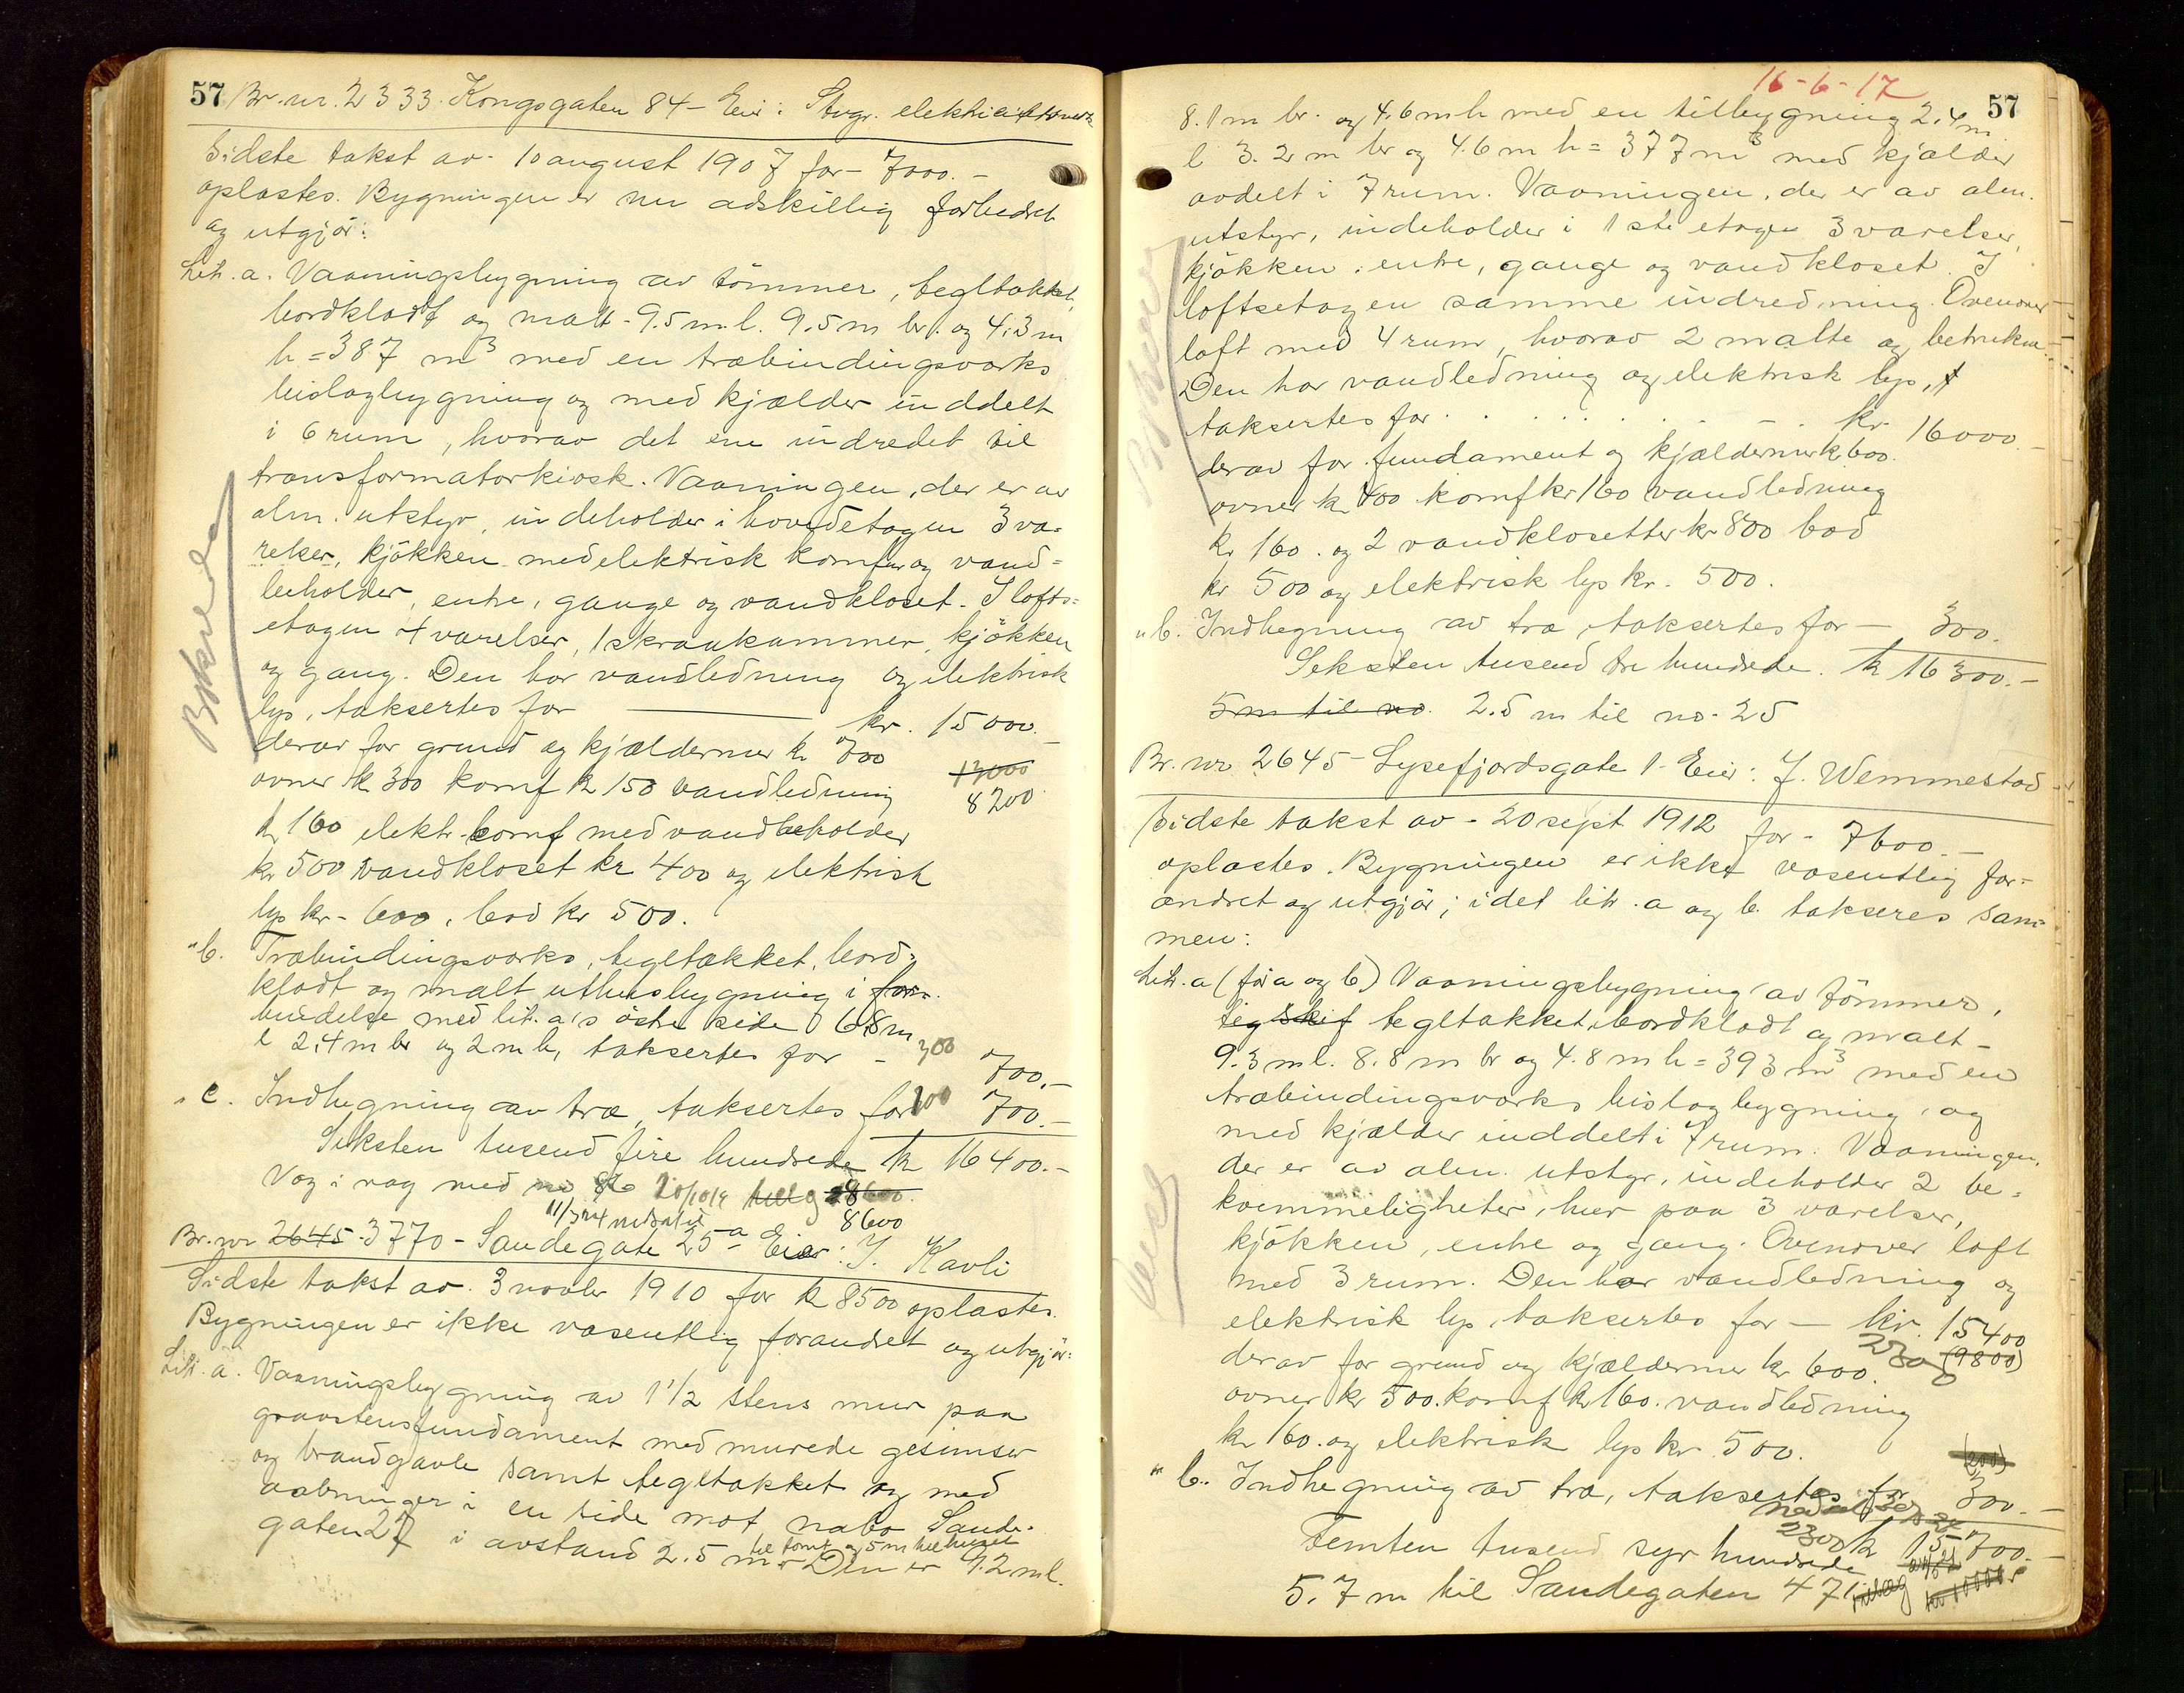 57 Br. nr. 2333. Kongsgaten 84 - Eier: Stvgr. elektricitetsverk
Sidste takst av - 10 august 1907 for - 7000. -
oplæstes. Bygningen er nu adskillig forbedret
og utgjör:
Litr. a. Vaaningsbygning av tömmer, tegltækket,
bordklædt og malt - 9.5 m l. 9.5 m br. og 4.3 m
h = 387 m³ med en træbindingsverks
bislagbygning og med kjælder inddelt
i 6 rum, hvorav det ene indredet til
transformatorkiosk. Vaaningen, der er av
alm. utstyr, indeholder i hovedetagen 3 væ-
relser, kjökken med elektrisk komfur og vand-
beholder, entre, gange og vandkloset. I lofts-
etagen 4 værelser, 1 skraakammer, kjökken
og gang. Den har vandledning og elektrisk
lys, taksertes for — kr. 15000. -
derav for grund og kjældermur kr 700
13000
ovner kr 300 komf kr 150 vandledning
8200
kr 160 elektr. komf med vandbeholder
kr 500 vandkloset kr 400 og elektrisk
lys kr - 600, bod kr 500.
" b. Træbindingsverks, tegltækket, bord-
klædt og malt uthusbygning i for-
bindelse med lit. a's östre side 6.8 m
l 2.4 m br og 2 m h, taksertes for - 300 700. -
" c. Indhegning av træ, taksertes for 100 700. -
Seksten tusend fire hundrede kr 16400. -
Væg i væg med no 86 20/10 19 tillæg 8600.
11/3 24 nedsat til 8600
Br. nr 2645 - 3770 - Sandegate 25 a Eier: J. Kavli
Sidste takst av 3 novbr 1910 for kr 8500 oplæstes.
Bygningen er ikke væsentlig forandret og utgjör:
Litr. a. Vaaningsbygning av 1 1/2 stens mur paa
graastensfundament med murede gesimser
og brandgavle samt tegltækket og med
aabninger i en side mot nabo Sande-
gaten 27 i avstand 2.5 m til tomt og 5 m til huset - Den er 9.2 m l.
Bökse
16-6-17
57
8.1 m br. og 4.6 m h med en tilbygning 2.4 m
l 3.2 m br og 4.6 m h = 377 m³ med kjælder
avdelt i 7 rum. Vaaningen, der er av alm.
utstyr, indeholder i 1ste etage 3 værelser,
kjökken, entre, gange og vandkloset. I
loftsetagen samme indredning. Ovenover
loft med 4 rum, hvorav 2 malte og betrukne.
Den har vandledning og elektrisk lys,
taksertes for . . . . . . kr. 16000. -
derav for fundament og kjældermur kr 600.
ovner kr 400 komf kr 160 vandledning
kr 160. og 2 vandklosetter kr 800 bad
kr 500 og elektrisk lys kr. 500.
" b. Indhegning av træ, taksertes for — 300.
Seksten tusend tre hundrede. kr 16300. -
5 m til no. 2.5 m til no. 25
Br. nr 2645 - Lysefjordsgate 1 - Eier: J. Wemmestad
Sidste takst av - 20 sept 1912 for - 7600. -
oplæstes. Bygningen er ikke væsentlig for-
andret og utgjör; idet litr. a og b. takseres sam-
men:
Litr. a (för a og b) Vaaningsbygning av tömmer,
tegltækket, bordklædt og malt -
9.3 m l. 8.8 m br og 4.8 m h = 393 m³ med en
træbindingsverks bislagbygning, og
med kjælder inddelt i 7 rum. Vaaningen,
der er av alm. utstyr, indeholder 2 be-
kvemmeligheter, hver paa 3 værelser,
kjökken, entre og gang. Ovenover loft
med 3 rum. Den har vandledning og
elektrisk lys, taksertes for — kr. 15400
(9800)
derav for grund og kjældermur kr 600.
ovner kr 500. komf kr 160. vandledning
kr 160. og elektrisk lys kr. 500.
(200)
" b. Indhegning av træ, taksertes for 300. -
Femten tusend syv hundrede kr 15700. -
5.7 m til Sandegaten 47.
tillæg kr 10000